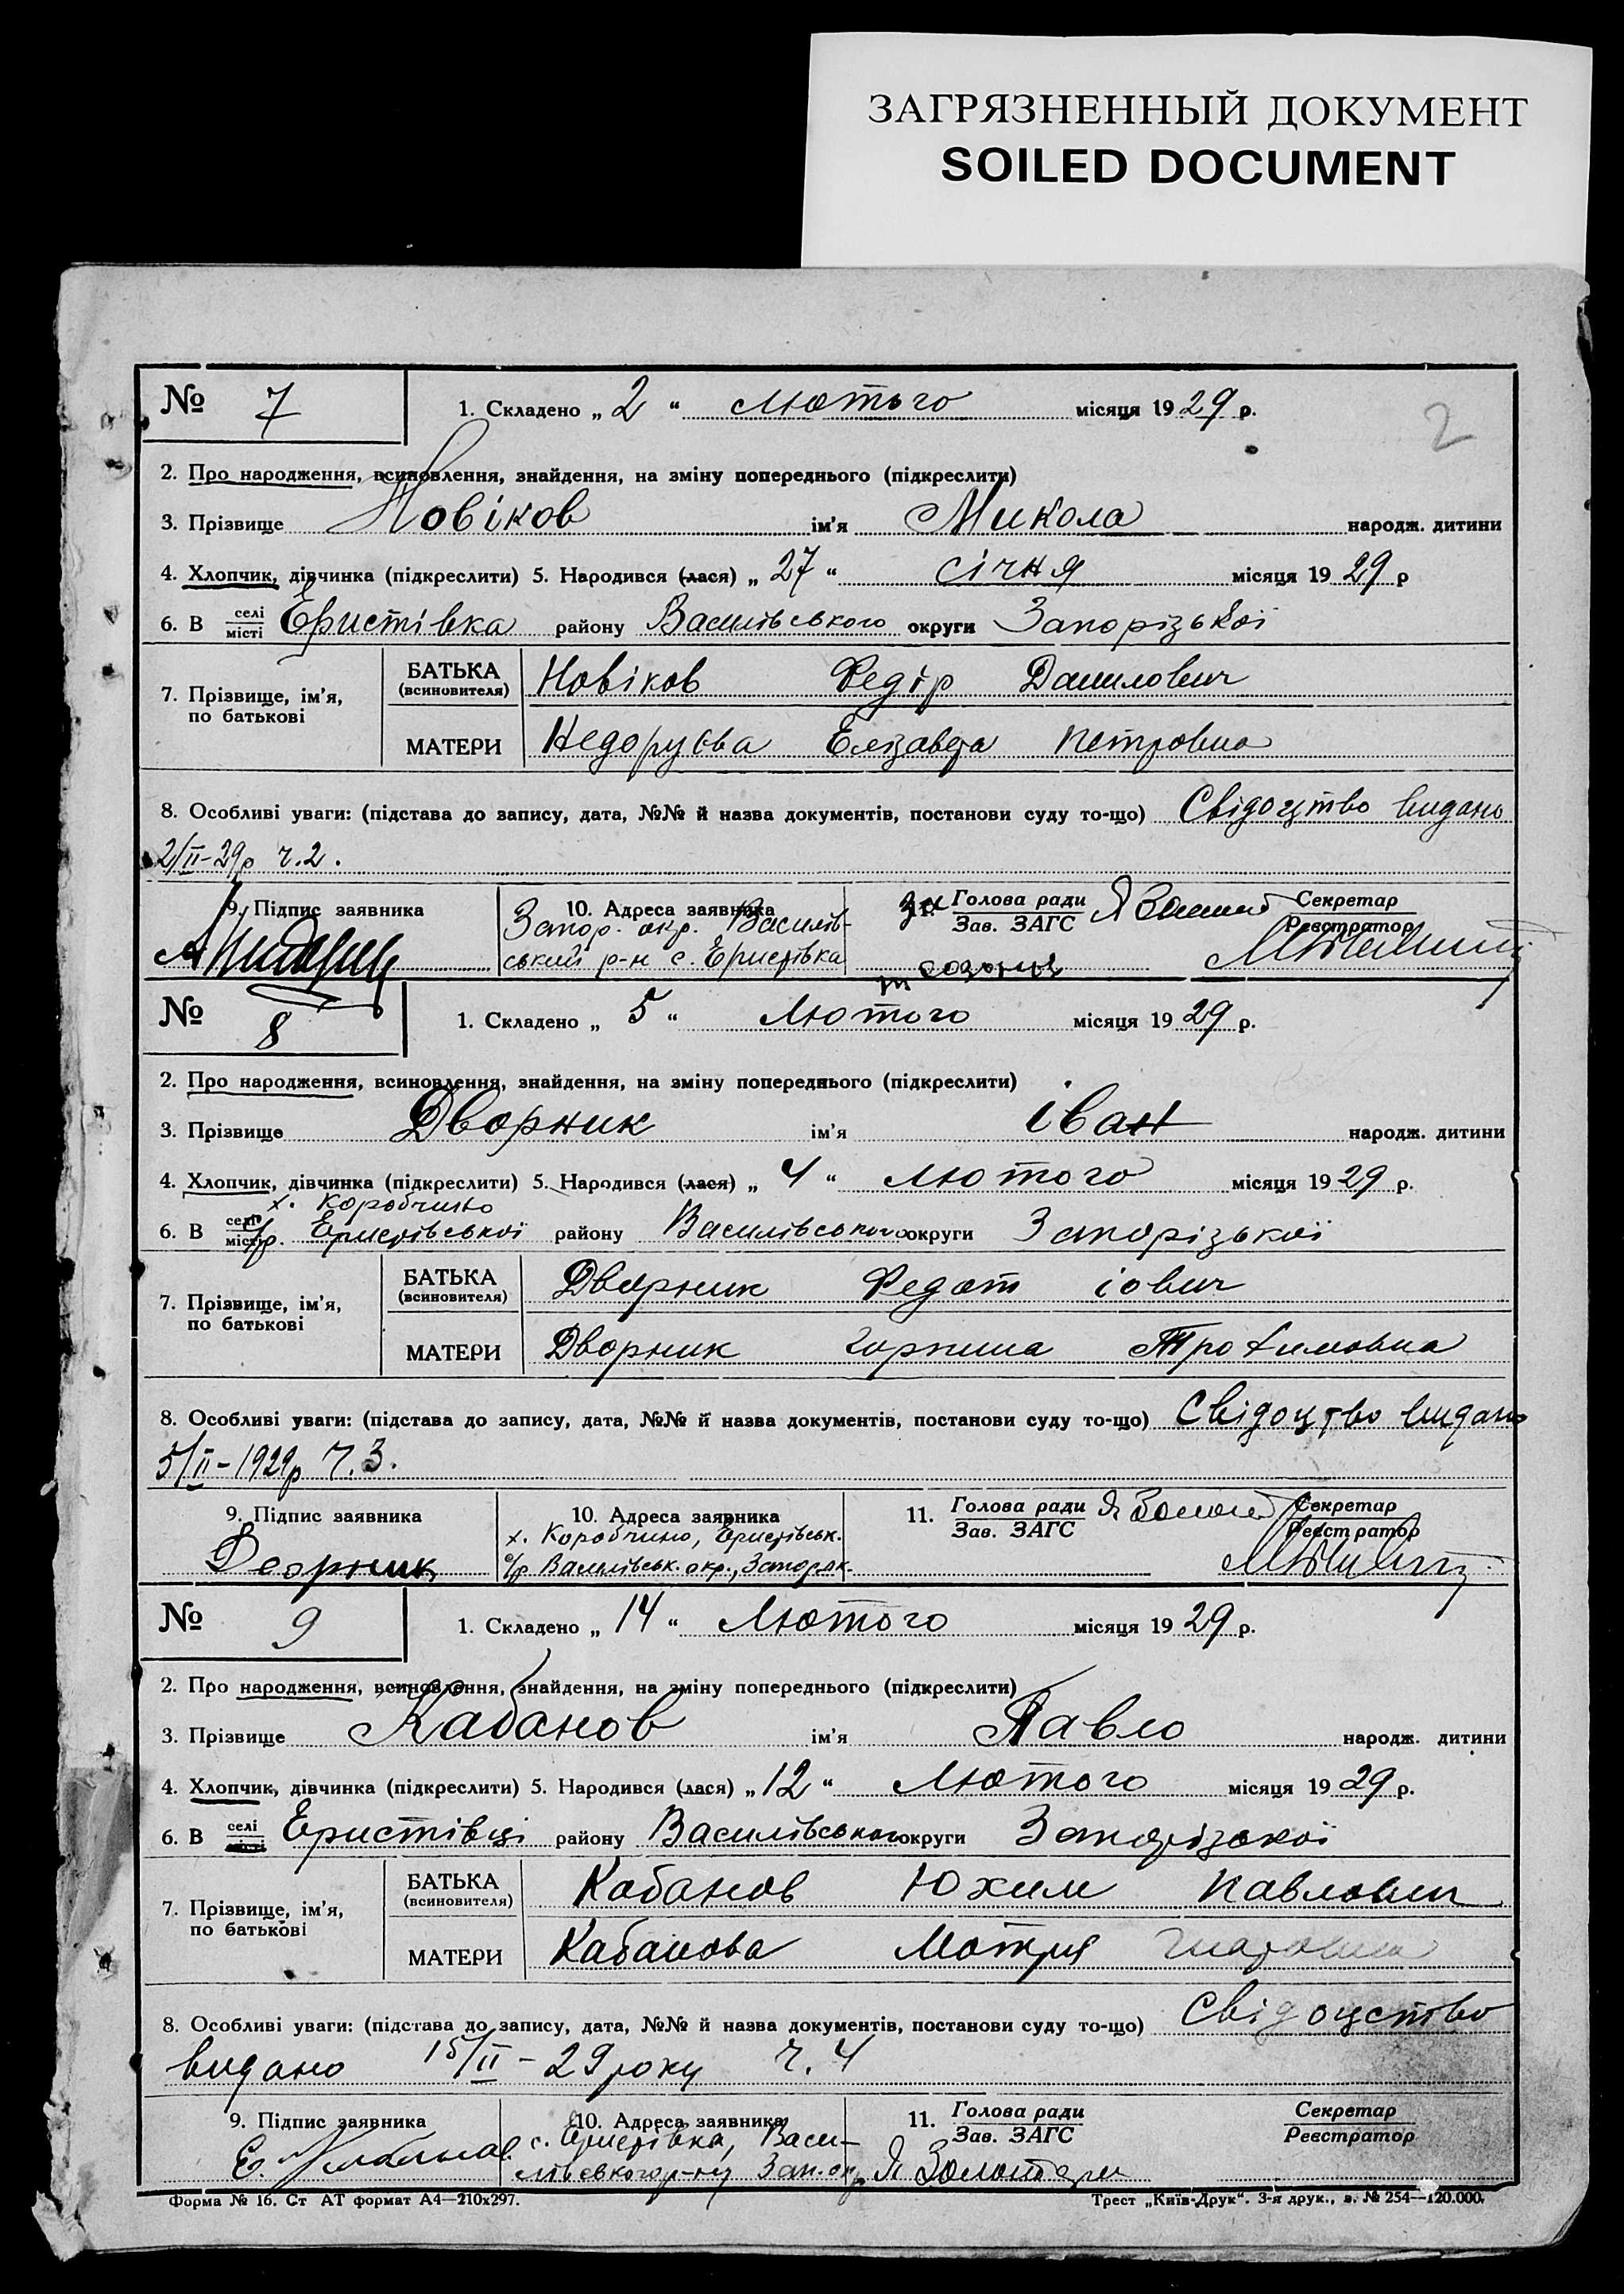 ЗАГРЯЗНЕННЫЙ ДОКУМЕНТ
SOILED DOCUMENT
2
№ 7 1. Складено „ 2 “ лютого місяця 1929 р.
2. Про народження, всиновлення, знайдення, на зміну попереднього (підкреслити)
3. Прізвище Новіков ім'я Микола народж. дитини
4. Хлопчик, дівчинка (підкреслити) 5. Народився (лася) „ 27 “ січня місяця 1929 р
6. В селі місті Єристівка району Василівського округи Запорізької
7. Прізвище, ім'я, по батькові
БАТЬКА (всиновителя) Новіков Федір Данилович
МАТЕРИ Єлізавета Петровна
8. Особливі уваги: (підстава до запису, дата, №№ й назва документів, постанови суду то-що) Свідоцтво видано
2/II-29р ч.2.
9. Підпис заявника 10. Адреса заявника За 11. Голова ради Зав. ЗАГС Секретар Реєстратор
Запор. окр. Василів-
ський р-н с. Єристівка
№ 8 1. Складено „ 5 “ Лютого місяця 1929 р.
2. Про народження, всиновлення, знайдення, на зміну попереднього (підкреслити)
3. Прізвище Дворник ім'я іван народж. дитини
4. Хлопчик, дівчинка (підкреслити) 5. Народився (лася) „ 4 “ лютого місяця 1929 р.
х. Коробчино
6. В селі місті с/р. Єристівської району Василівського округи Запорізької
7. Прізвище, ім'я, по батькові
БАТЬКА (всиновителя) Дворник Федот іович
МАТЕРИ Дворник Горпина Трохимовна
8. Особливі уваги: (підстава до запису, дата, №№ й назва документів, постанови суду то-що) Свідоцтво видано
5/II-1929р ч.3.
9. Підпис заявника 10. Адреса заявника 11. Голова ради Зав. ЗАГС Секретар Реєстратор
х. Коробчино, Єристівськ.
Дворник с/р Василівськ. окр., Запоріж.
№ 9 1. Складено „ 14 “ Лютого місяця 1929 р.
2. Про народження, всиновлення, знайдення, на зміну попереднього (підкреслити)
3. Прізвище Кабанов ім'я Павло народж. дитини
4. Хлопчик, дівчинка (підкреслити) 5. Народився (лася) „ 12 “ Лютого місяця 1929 р.
6. В селі місті Єристівці району Василівського округи Запорізької
7. Прізвище, ім'я, по батькові
БАТЬКА (всиновителя) Кабанов Юхим Павлович
МАТЕРИ Кабанова Мотря
8. Особливі уваги: (підстава до запису, дата, №№ й назва документів, постанови суду то-що) Свідоцство
видано 15/II-29 року ч. 4
9. Підпис заявника 10. Адреса заявника 11. Голова ради Зав. ЗАГС Секретар Реєстратор
с. Єристівка, Васи-
Форма № 16. Ст АТ формат А4—210х297. Трест „Київ-Друк“. 3-я друк., з. № 254—120.000.